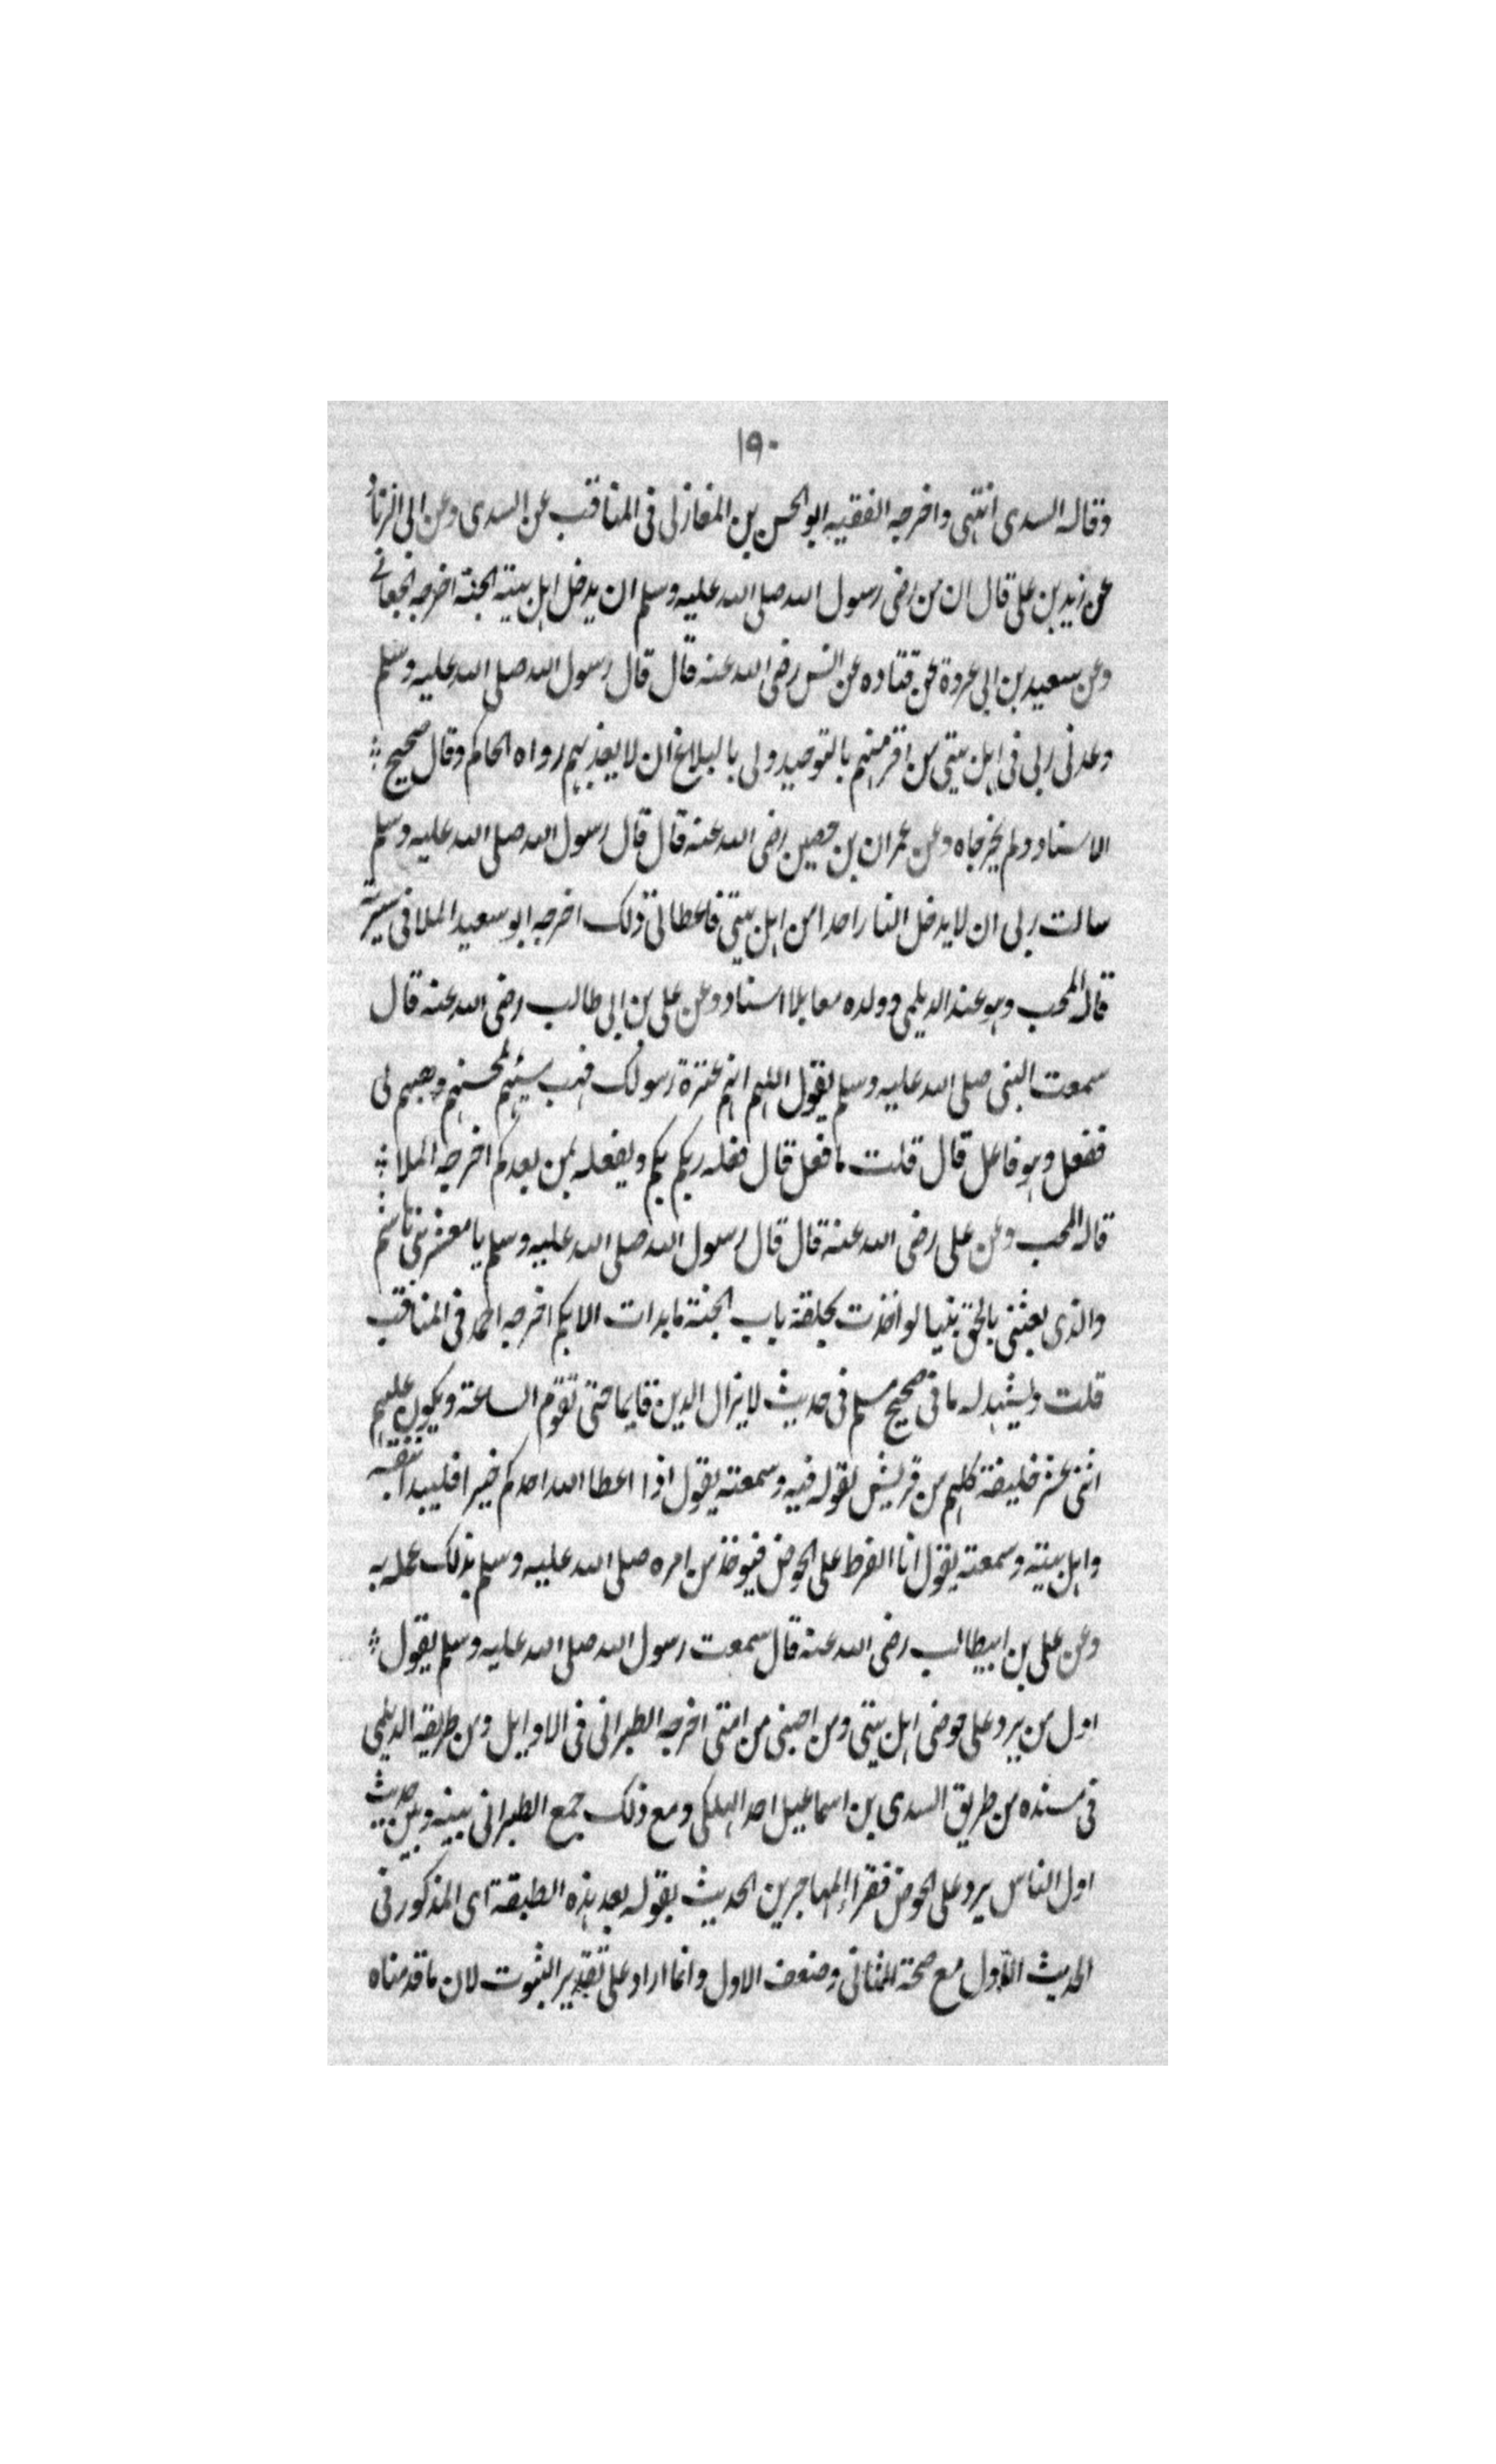 ١٩٠
وقاله السدى انتهى واخرجه الفقيه ابو الحسن بن المغازلى فى المناقب عن السدى وعن ابى الزناد
عن زيد بن على قال ان من رضى رسول الله صلى الله عليه وسلم ان يدخل اهل بيته الجنة اخرجه الجعابى
وعن سعيد بن ابى عروة عن قتاده عن انس رضى الله عنه قال قال رسول الله صلى الله عليه وسلم
وعدنى ربى فى اهل بيتى من اقر منهم بالتوحيد ولى بالبلاغ ان لا يعذبهم رواه الحاكم وقال صحيح
الاسناد ولم يخرجاه وعن عمران بن حصين رضى الله عنه قال قال رسول الله صلى الله عليه وسلم
سالت ربى ان لا يدخل النار احدا من اهل بيتى فاعطانى ذلك اخرجه ابو سعيد الملا فى سيرته
قاله المحب وهو عند الديلمى وولده معا بلا اسناد وعن على بن ابى طالب رضى الله عنه قال
سمعت النبى صلى الله عليه وسلم يقول اللهم انهم عترة رسولك فهب سيئهم لمحسنهم وهبهم لى
ففعل وهو فاعل قال قلت ما فعل قال فعله ربكم بكم ويفعله بمن بعدكم اخرجه الملا
قاله المحب وعن على رضى الله عنه قال قال رسول الله صلى الله عليه وسلم يا معشر بنى هاشم
والذى بعثنى بالحق نبيا لو اخذت بحلقة باب الجنة ما بدات الا بكم اخرجه احمد فى المناقب
قلت ويشهد له ما فى صحيح مسلم فى حديث لا يزال الدين قايما حتى تقوم الساعة ويكون عليهم
اثنى عشر خليفة كلهم من قريش لقوله فيه وسمعته يقول اذا اعطا الله احدكم خيرا فليبدا بنفسه
واهل بيته وسمعته يقول انا الفرط على الحوض فيوخذ من امره صلى الله عليه وسلم بذلك عمله به
وعن على بن ابيطالب رضى الله عنه قال سمعت رسول الله صلى الله عليه وسلم يقول
اول من يرد على حوضى اهل بيتى ومن احبنى من امتى اخرجه الطبرانى فى الاوايل ومن طريقه الديلمى
فى مسنده من طريق السدى بن اسماعيل احد الهلكى ومع ذلك جمع الطبرانى بينه وبين حديث
اول الناس يرد على الحوض فقراء المهاجرين الحديث بقوله بعد هذه الطبقة اى المذكور فى
الحديث الاول مع صحة الثانى وضعف الاول وانما اراد على تقدير الثبوت لان ما قدمناه